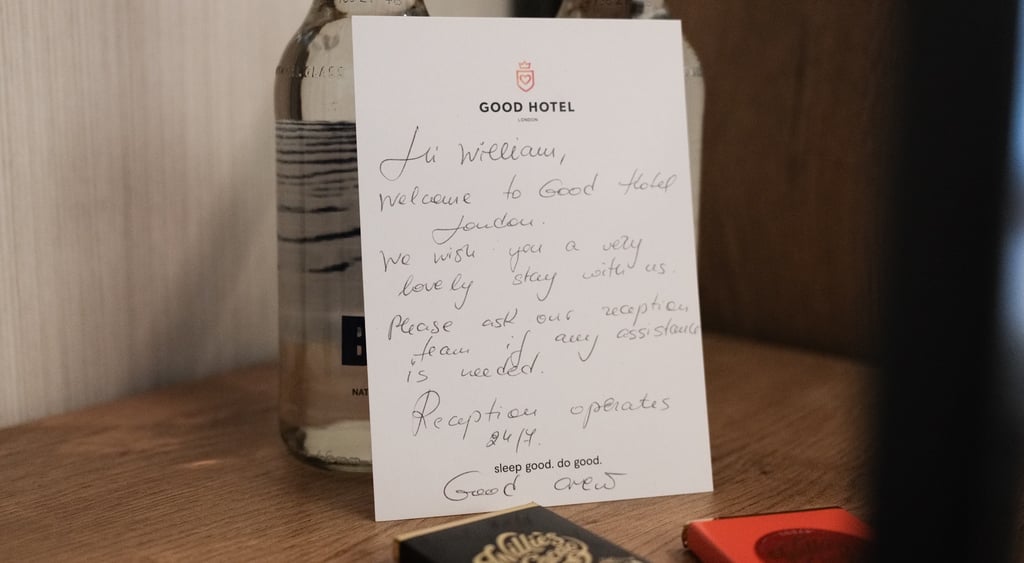 GLASS
GOOD HOTEL
LONDON
Hi William,
Welcome to Good Hotel
London.
We wish you a very
lovely stay with us.
Please ask our reception
team if any assistance
is needed.
Reception operates
24/7.
sleep good. do good.
Good crew
B
NAT
Willie's